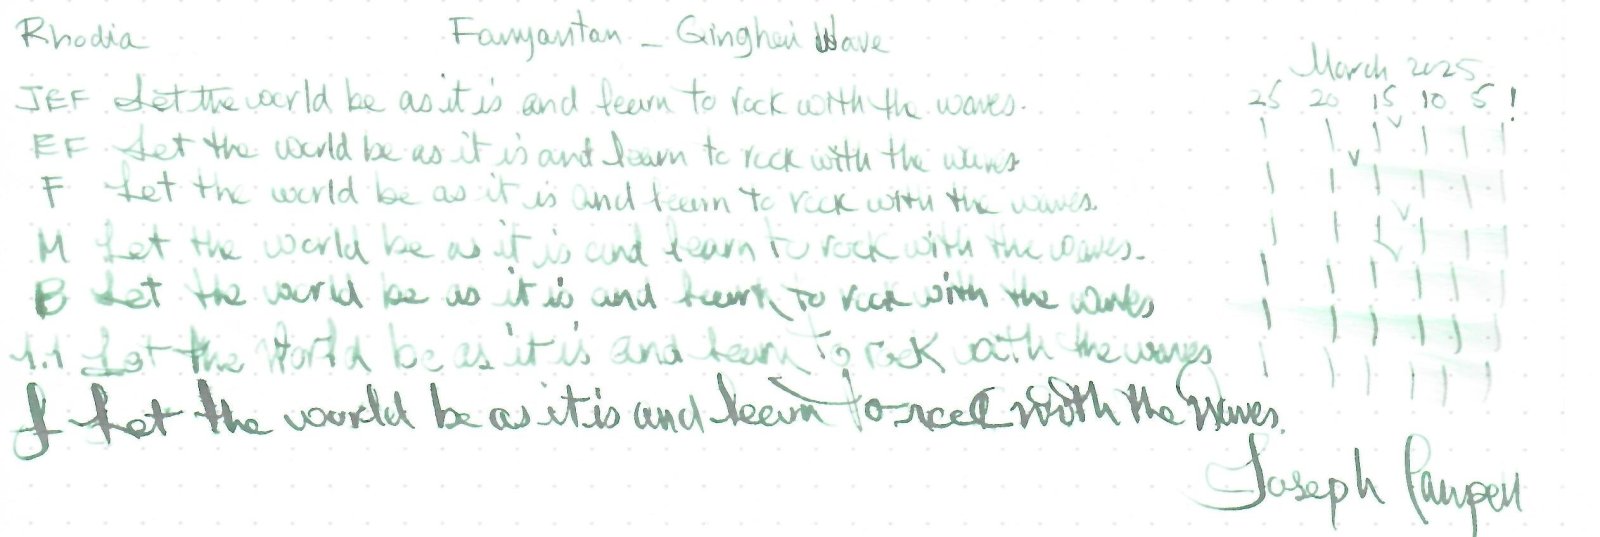 Rhodia
Fanyantan - Qinghai Wave
March 2025
25 20 15 10 5 !
JEF Let the world be as it is and learn to rock with the waves.
EF Let the world be as it is and learn to rock with the waves
F Let the world be as it is and learn to rock with the waves.
M Let the world be as it is and learn to rock with the waves.
B Let the world be as it is and learn to rock with the waves
1.1 Let the World be as it is and learn to rock with the waves
f Let the world be as it is and learn to rock with the Waves.
Joseph